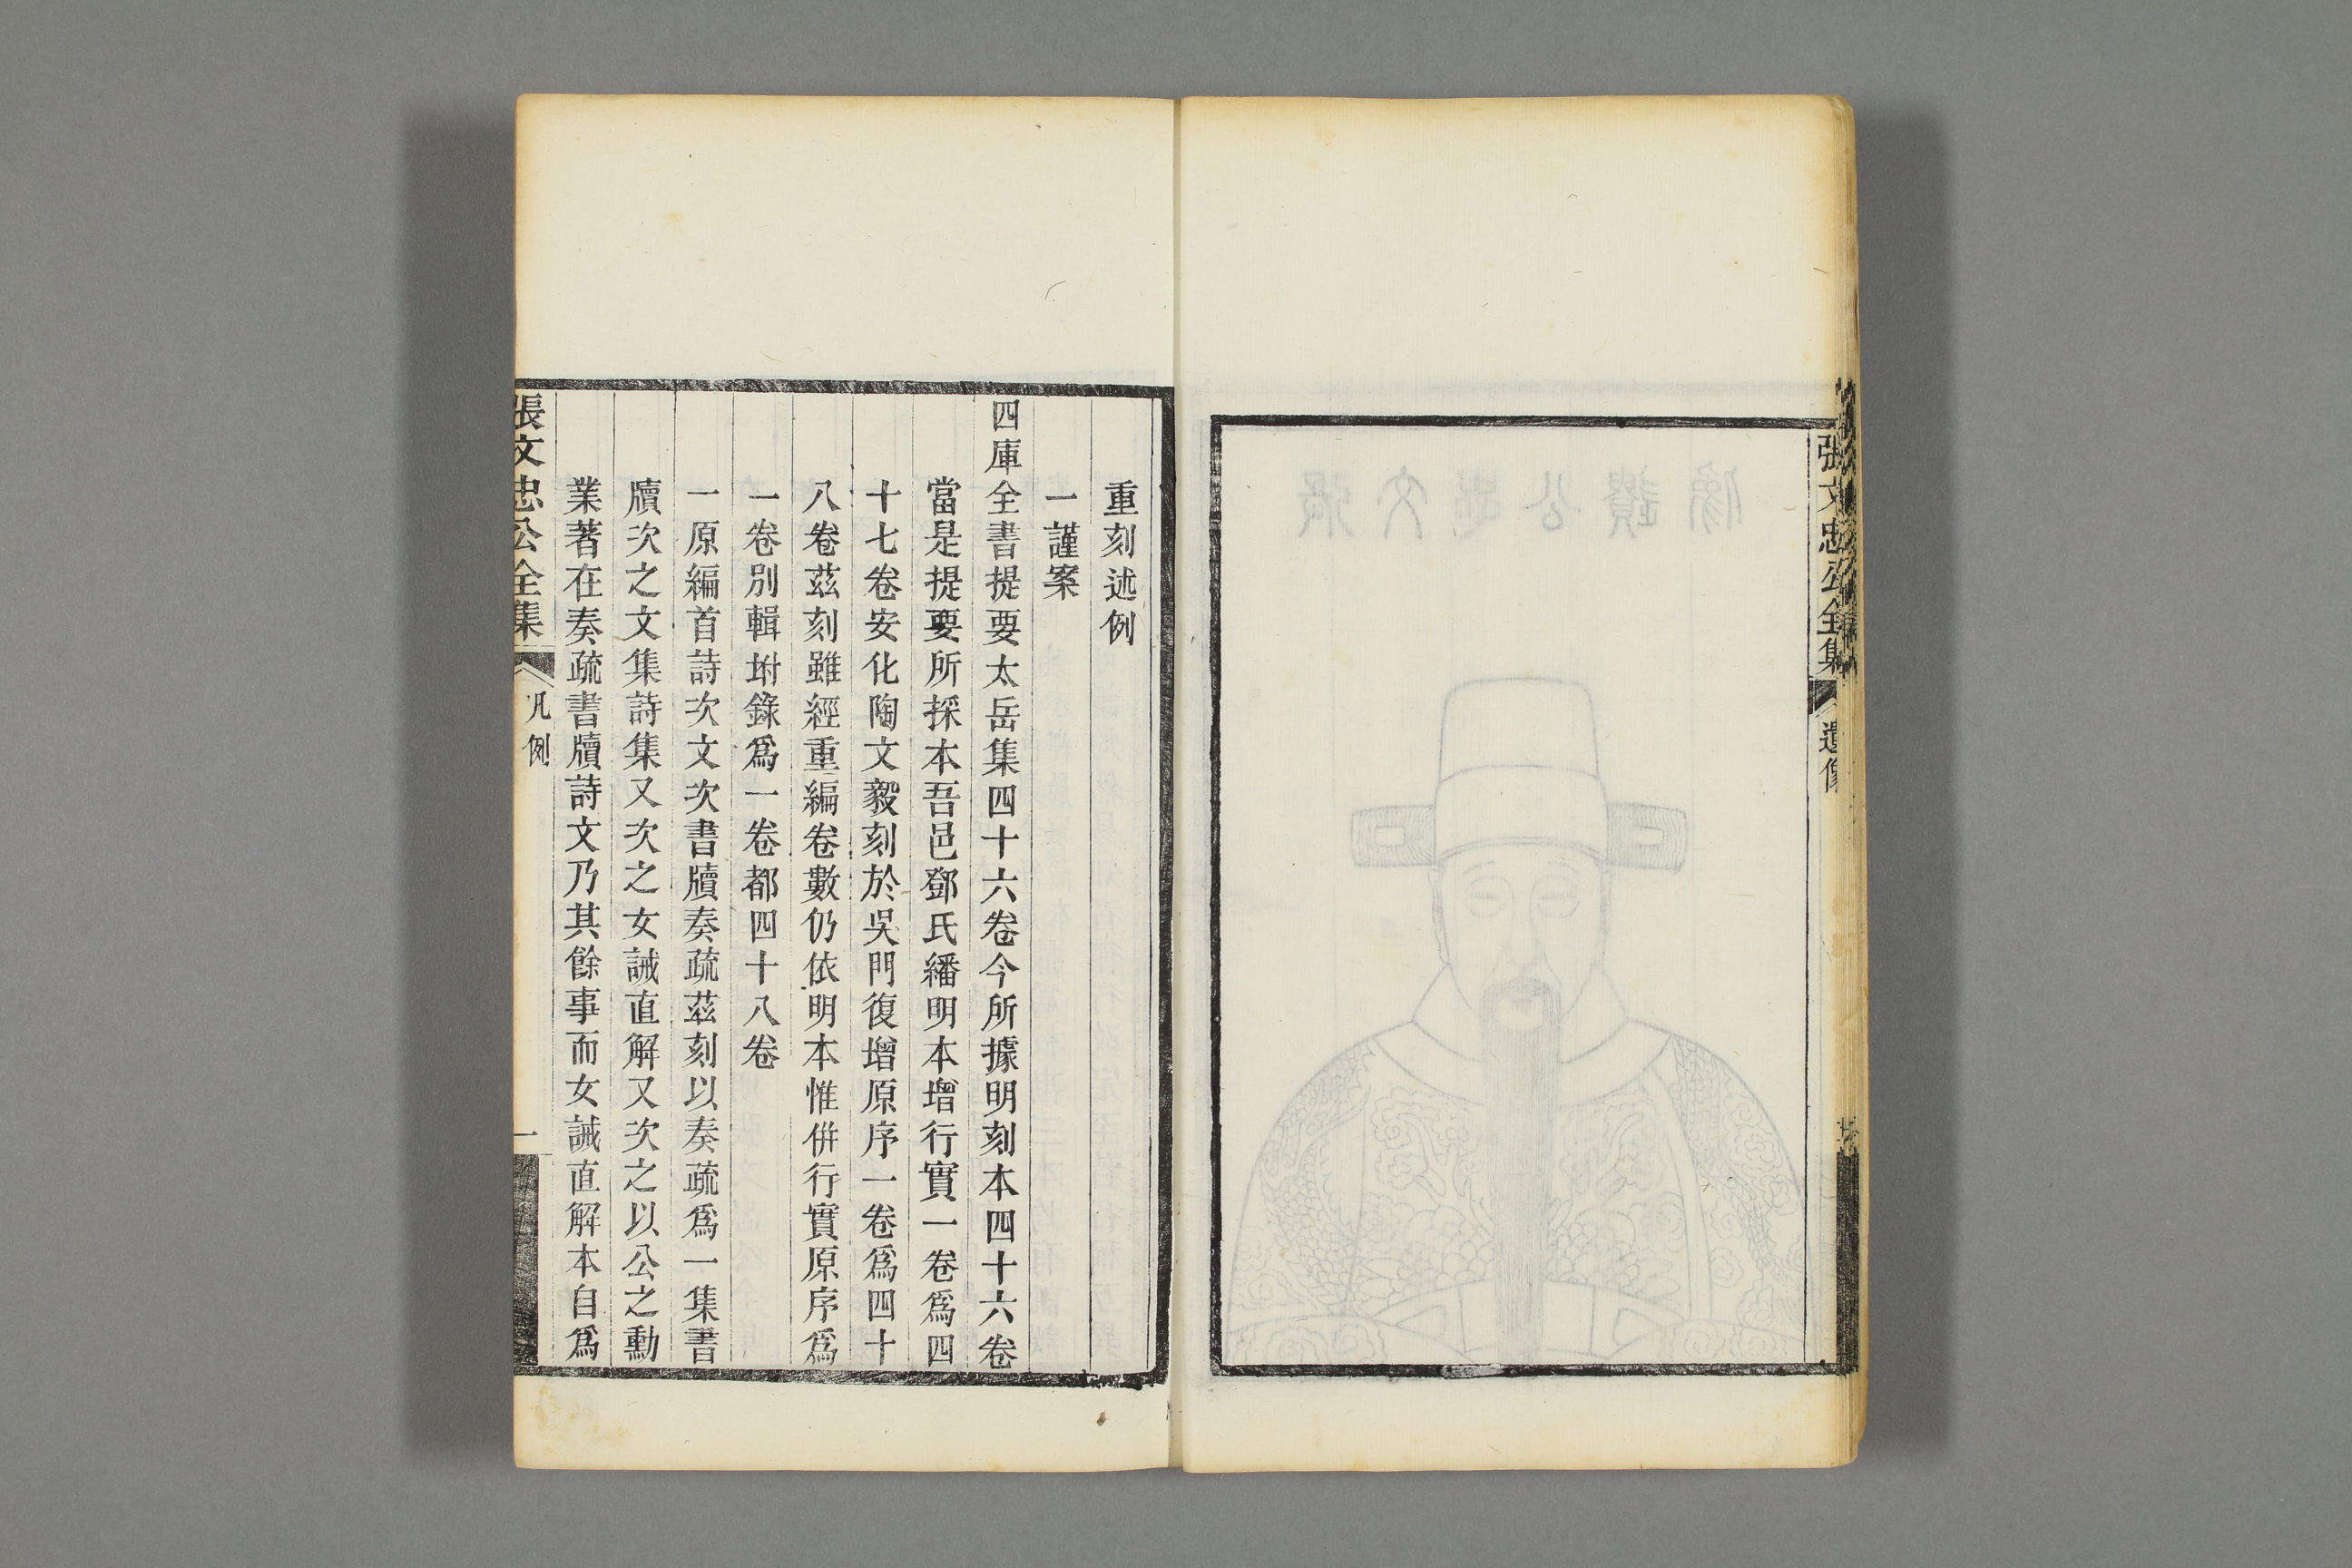 張文忠公全集
遺像
張文忠公遺像
重刻述例
一謹案
四庫全書提要太岳集四十六卷今所據明刻本四十六卷
當是提要所採本吾邑鄧氏繙明本增行實一卷爲四
十七卷安化陶文毅刻於吳門復增原序一卷爲四十
八卷茲刻雖經重編卷數仍依明本惟併行實原序爲
一卷別輯坿錄爲一卷都四十八卷
一原編首詩次文次書牘奏疏茲刻以奏疏爲一集書
牘次之文集詩集又次之女誡直解又次之以公之勳
業著在奏疏書牘詩文乃其餘事而女誡直解本自爲
張文忠公全集
凡例
一